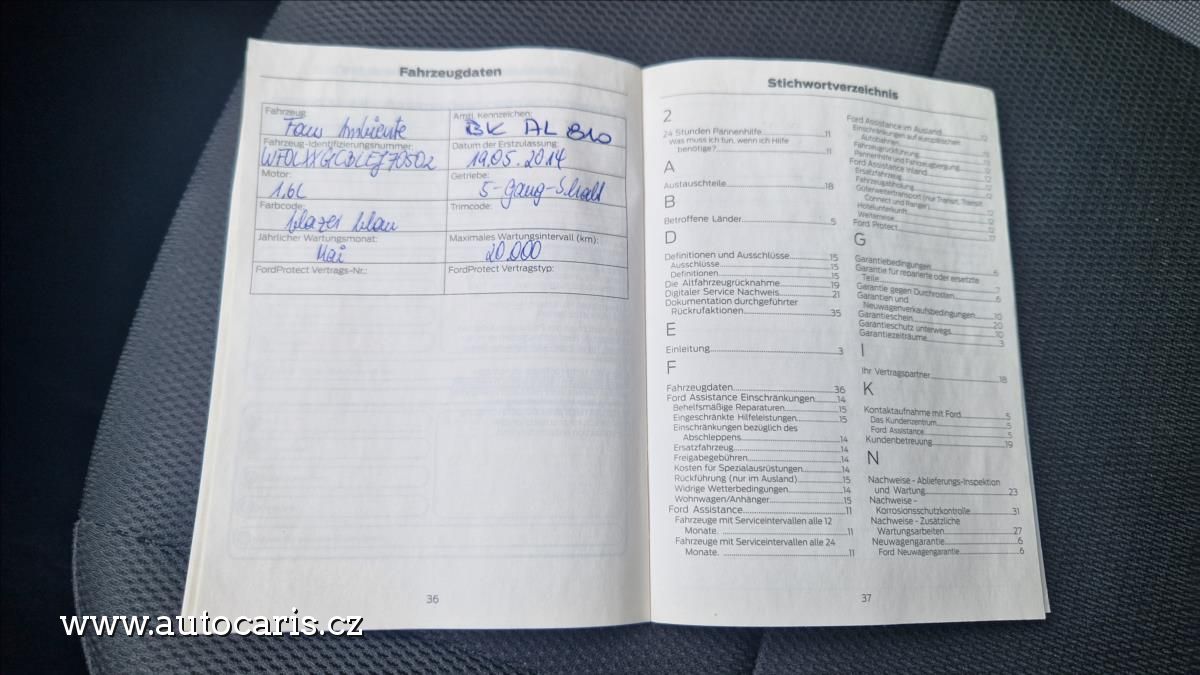 Fahrzeugdaten
Fahrzeug:
Amtl. Kennzeichen:
Focus Ambiente
BK AL 810
Fahrzeug-Identifizierungsnummer:
Datum der Erstzulassung:
19.05.2014
Motor:
Getriebe:
1,6L
5-Gang-Schalt
Farbcode:
Trimcode:
blazer blau
Jährlicher Wartungsmonat:
Maximales Wartungsintervall (km):
Mai
20.000
FordProtect Vertrags-Nr.:
FordProtect Vertragstyp:
36
Stichwortverzeichnis
2
24 Stunden Pannenhilfe 11
Was muss ich tun, wenn ich Hilfe
benötige? 11
A
Austauschteile 18
B
Betroffene Länder 5
D
Definitionen und Ausschlüsse 15
Ausschlüsse 15
Definitionen 15
Die Altfahrzeugrücknahme 19
Digitaler Service Nachweis 21
Dokumentation durchgeführter
Rückrufaktionen 35
E
Einleitung 3
F
Fahrzeugdaten 36
Ford Assistance Einschränkungen 14
Behelfsmäßige Reparaturen 15
Eingeschränkte Hilfeleistungen 15
Einschränkungen bezüglich des
Abschleppens 14
Ersatzfahrzeug 14
Freigabegebühren 14
Kosten für Spezialausrüstungen 14
Rückführung (nur im Ausland) 15
Widrige Wetterbedingungen 14
Wohnwagen/Anhänger 15
Ford Assistance 11
Fahrzeuge mit Serviceintervallen alle 12
Monate. 11
Fahrzeuge mit Serviceintervallen alle 24
Monate. 11
Ford Assistance im Ausland
Einschränkungen auf europäischen
Autobahnen
Fahrzeugrückführung
Pannenhilfe und Fahrzeugbergung
Ford Assistance Inland
Ersatzfahrzeug 12
Fahrzeugabholung 12
Güterweitertransport (nur Transit, Transit
Connect und Ranger) 12
Hotelunterkunft 12
Weiterreise 12
Ford Protect 17
G
Garantiebedingungen 5
Garantie für reparierte oder ersetzte
Teile 7
Garantie gegen Durchrosten 6
Garantien und
Neuwagenverkaufsbedingungen 10
Garantieschein 20
Garantieschutz unterwegs 10
Garantiezeiträume 3
I
Ihr Vertragspartner 18
K
Kontaktaufnahme mit Ford 5
Das Kundenzentrum 5
Ford Assistance 5
Kundenbetreuung 19
N
Nachweise - Ablieferungs-Inspektion
und Wartung 23
Nachweise -
Korrosionsschutzkontrolle 31
Nachweise - Zusätzliche
Wartungsarbeiten 27
Neuwagengarantie 6
Ford Neuwagengarantie 6
37
www.autocaris.cz